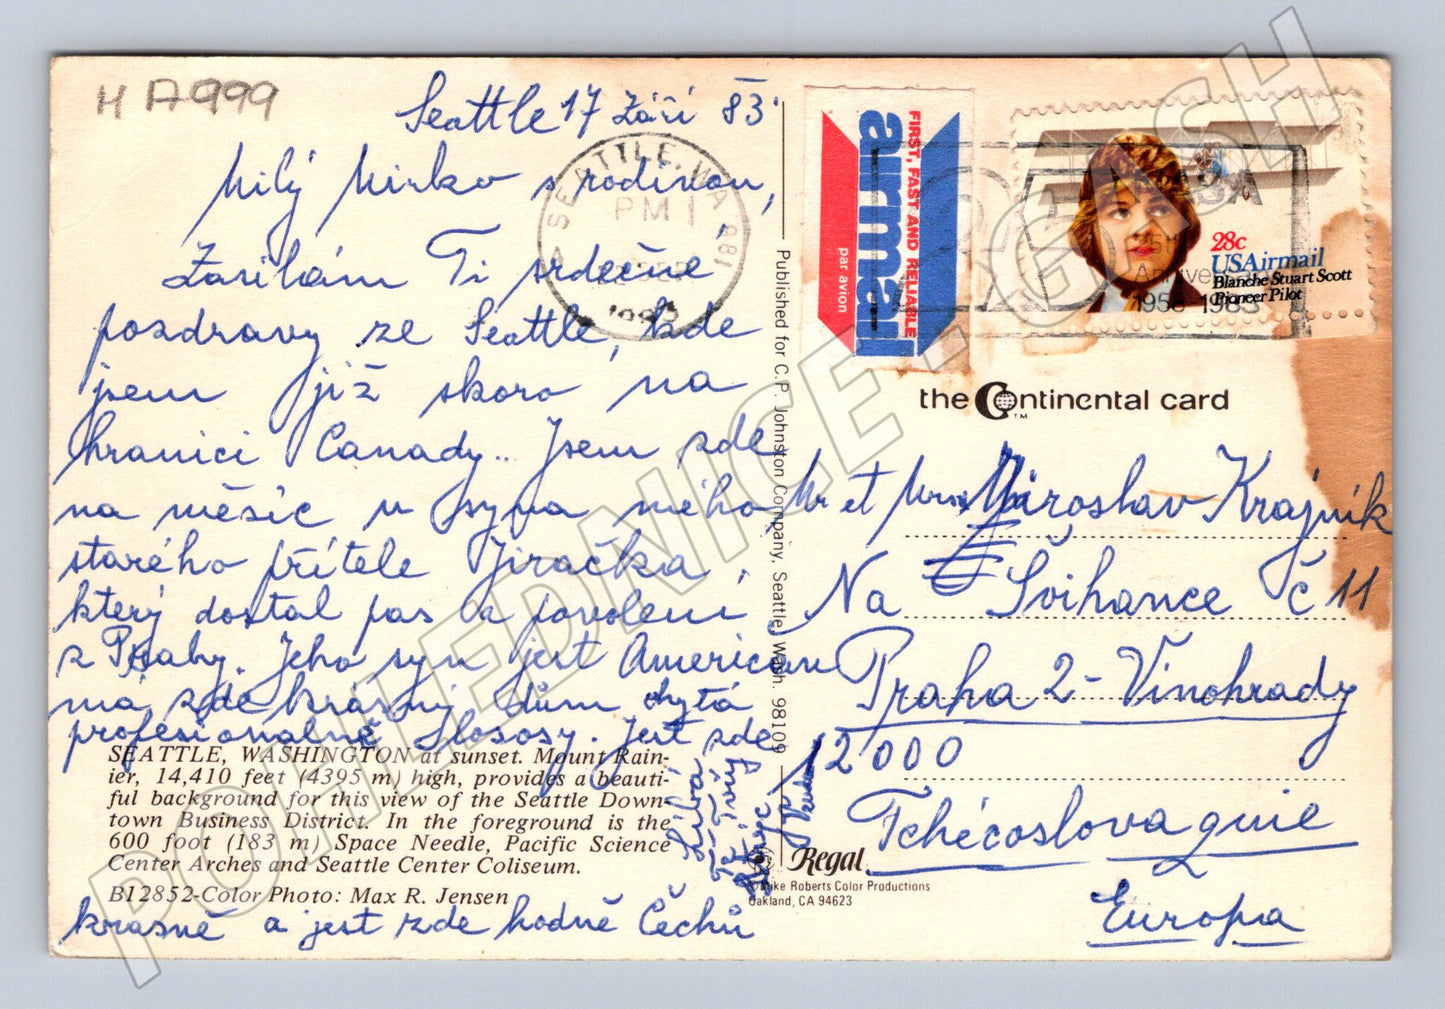 H A999
Seattle 17 Září 83.
Milý Mirko s rodinou,
Zasílám Ti srdečné
pozdravy ze Seattle, kde
jsem již skoro na
hranici Canady.. Jsem zde
na měsíc u syna mého
starého přítele Jiračka,
který dostal pas a povolení
z Prahy. Jeho syn jest American
má zde krásný dům chytá
profesionalně Lososy. Jest zde
krasně a jest zde hodně Čechů
Líbá
SEATTLE, WASHINGTON at sunset. Mount Rain-
ier, 14,410 feet (4395 m) high, provides a beauti-
ful background for this view of the Seattle Down-
town Business District. In the foreground is the
600 foot (183 m) Space Needle, Pacific Science
Center Arches and Seattle Center Coliseum.
B12852-Color Photo: Max R. Jensen
Published for C.P. Johnston Company, Seattle, Wash. 98109
SEATTLE, WA 981
PM
SEP
1983
FIRST, FAST AND RELIABLE
airmail
par avion
USA
Anniversary
1958-1983
28c
USAirmail
Blanche Stuart Scott
Pioneer Pilot
the Continental card
TM
Mr et Miroslav Krajník
Na Švihance č 11
Praha 2 - Vinohrady
12000
Tchécoslovaquie
Europa
Regal
© Mike Roberts Color Productions
Oakland, CA 94623
POHLEDNICE-GASH